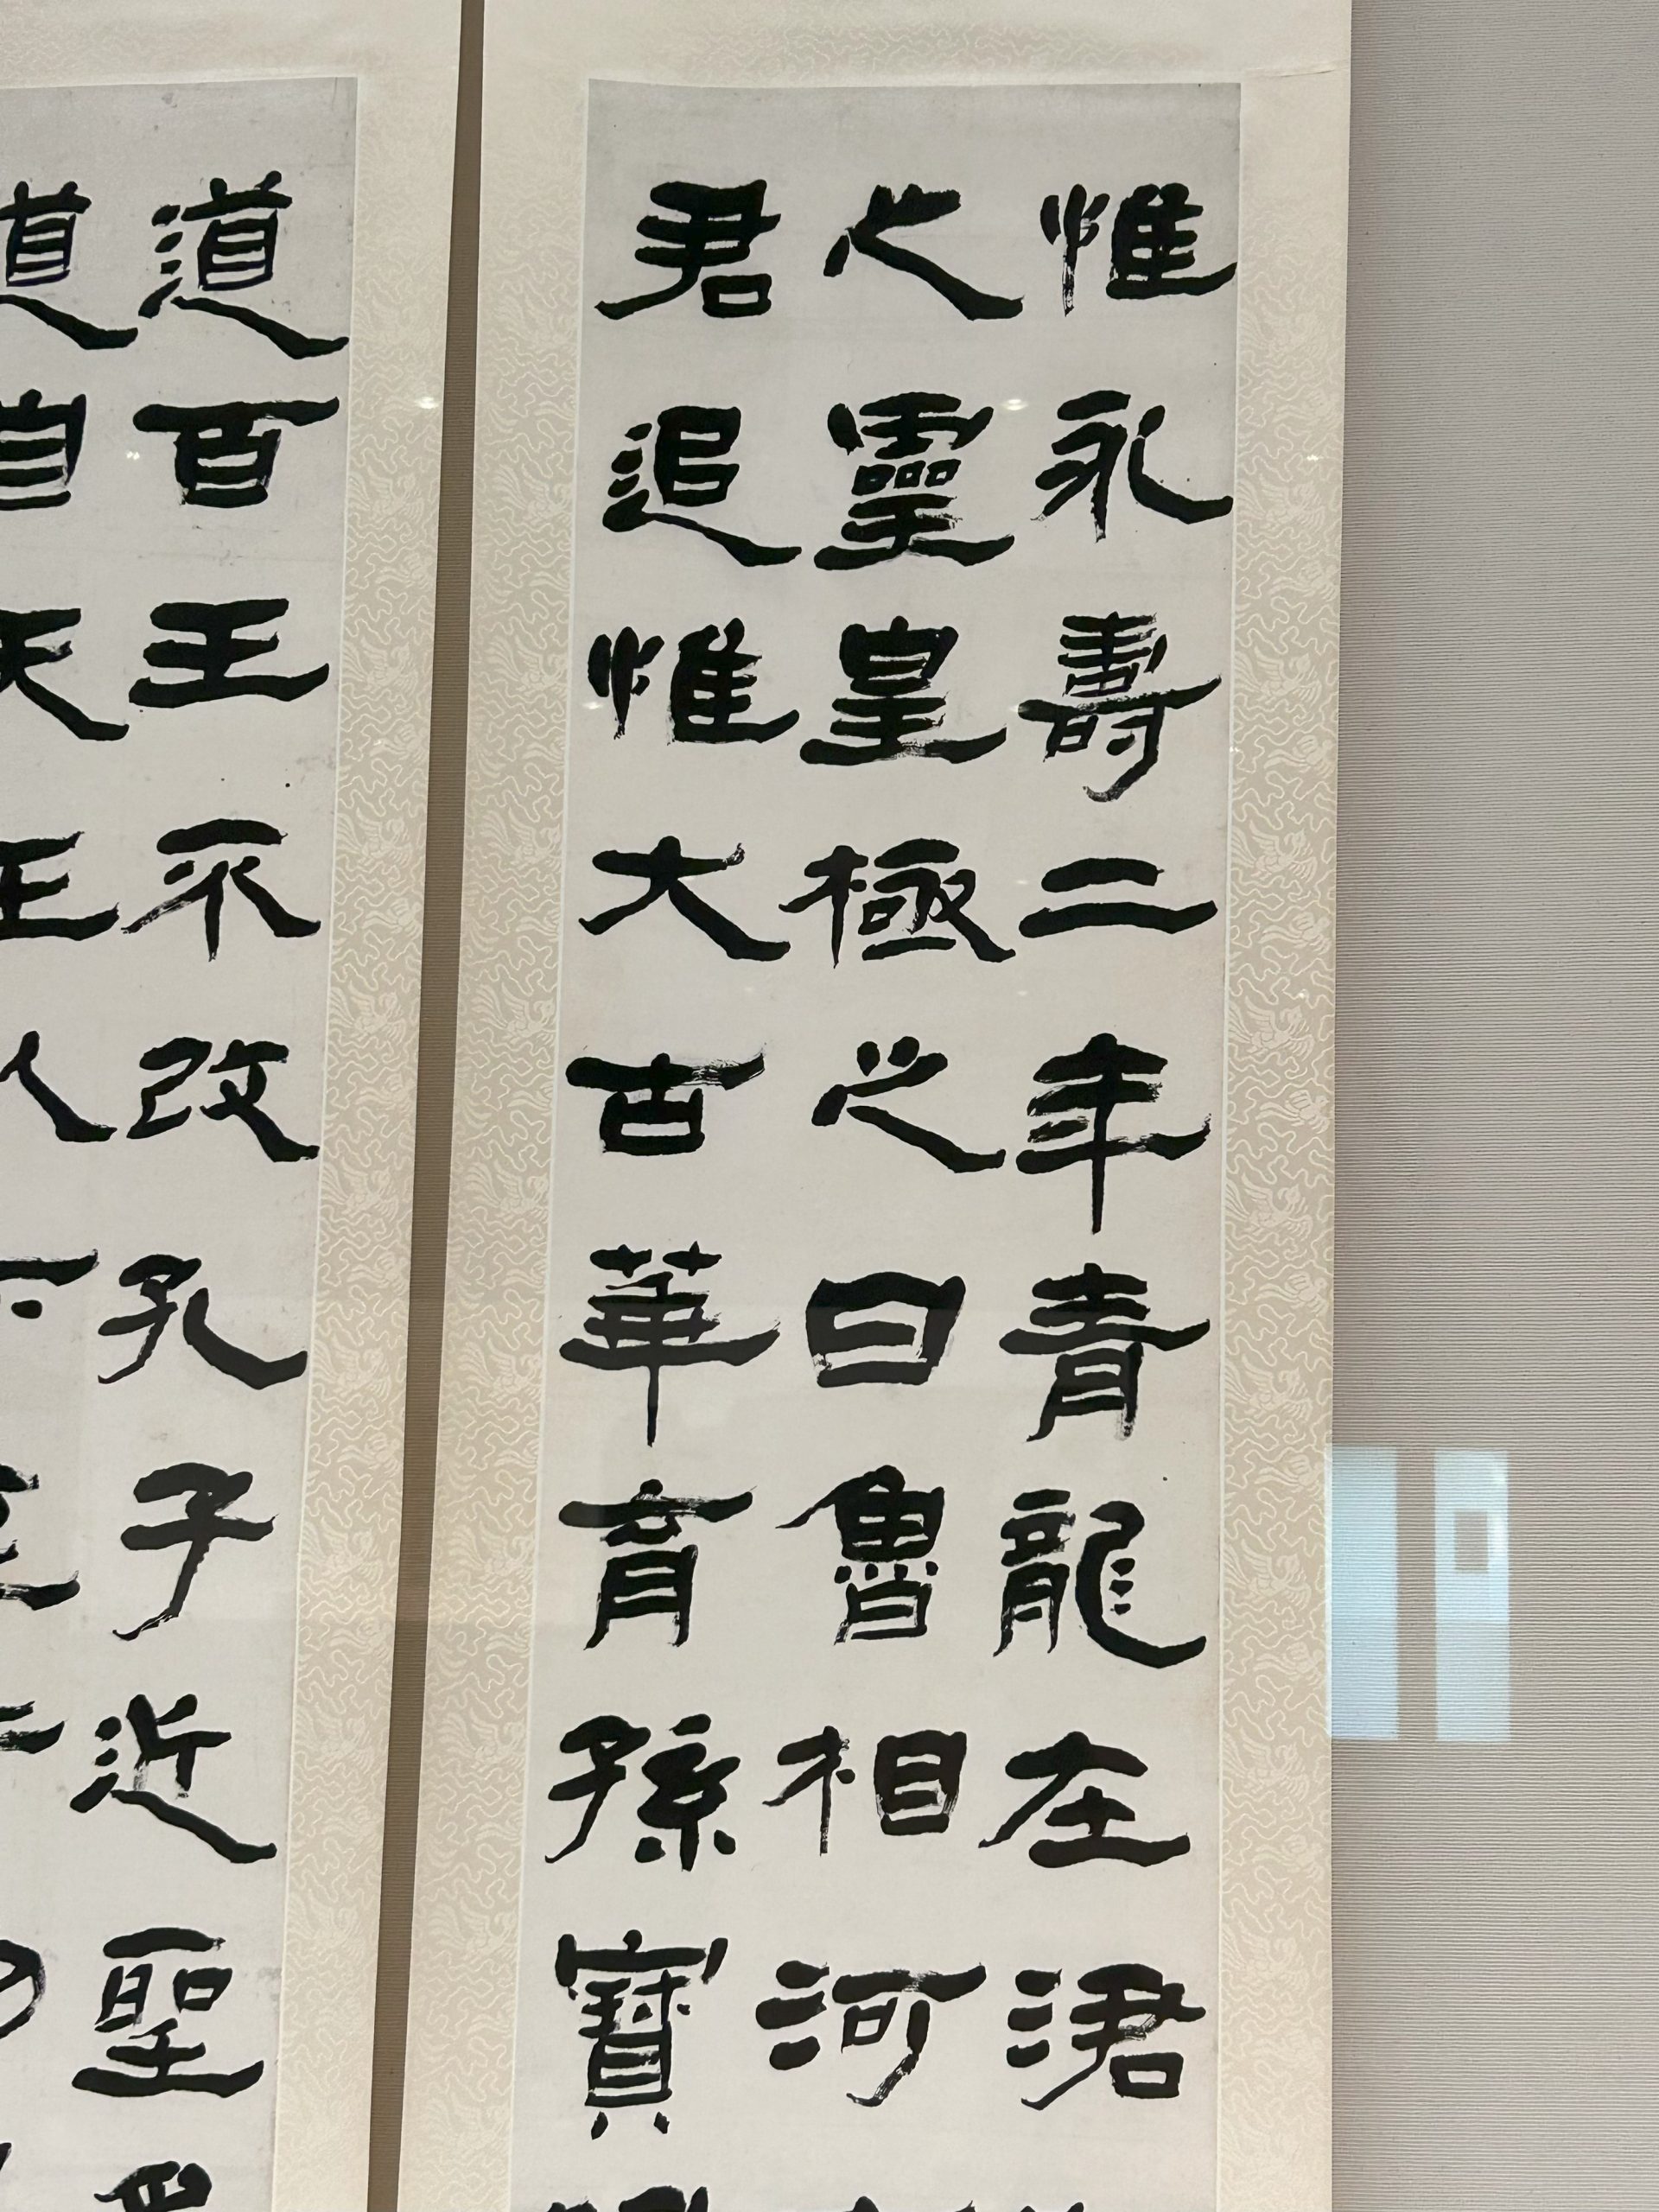 惟永壽二年青龍在涒
之靈皇極之日魯相河
君追惟大古華胥孫寶
道百王不改孔子近聖
道自天王人下